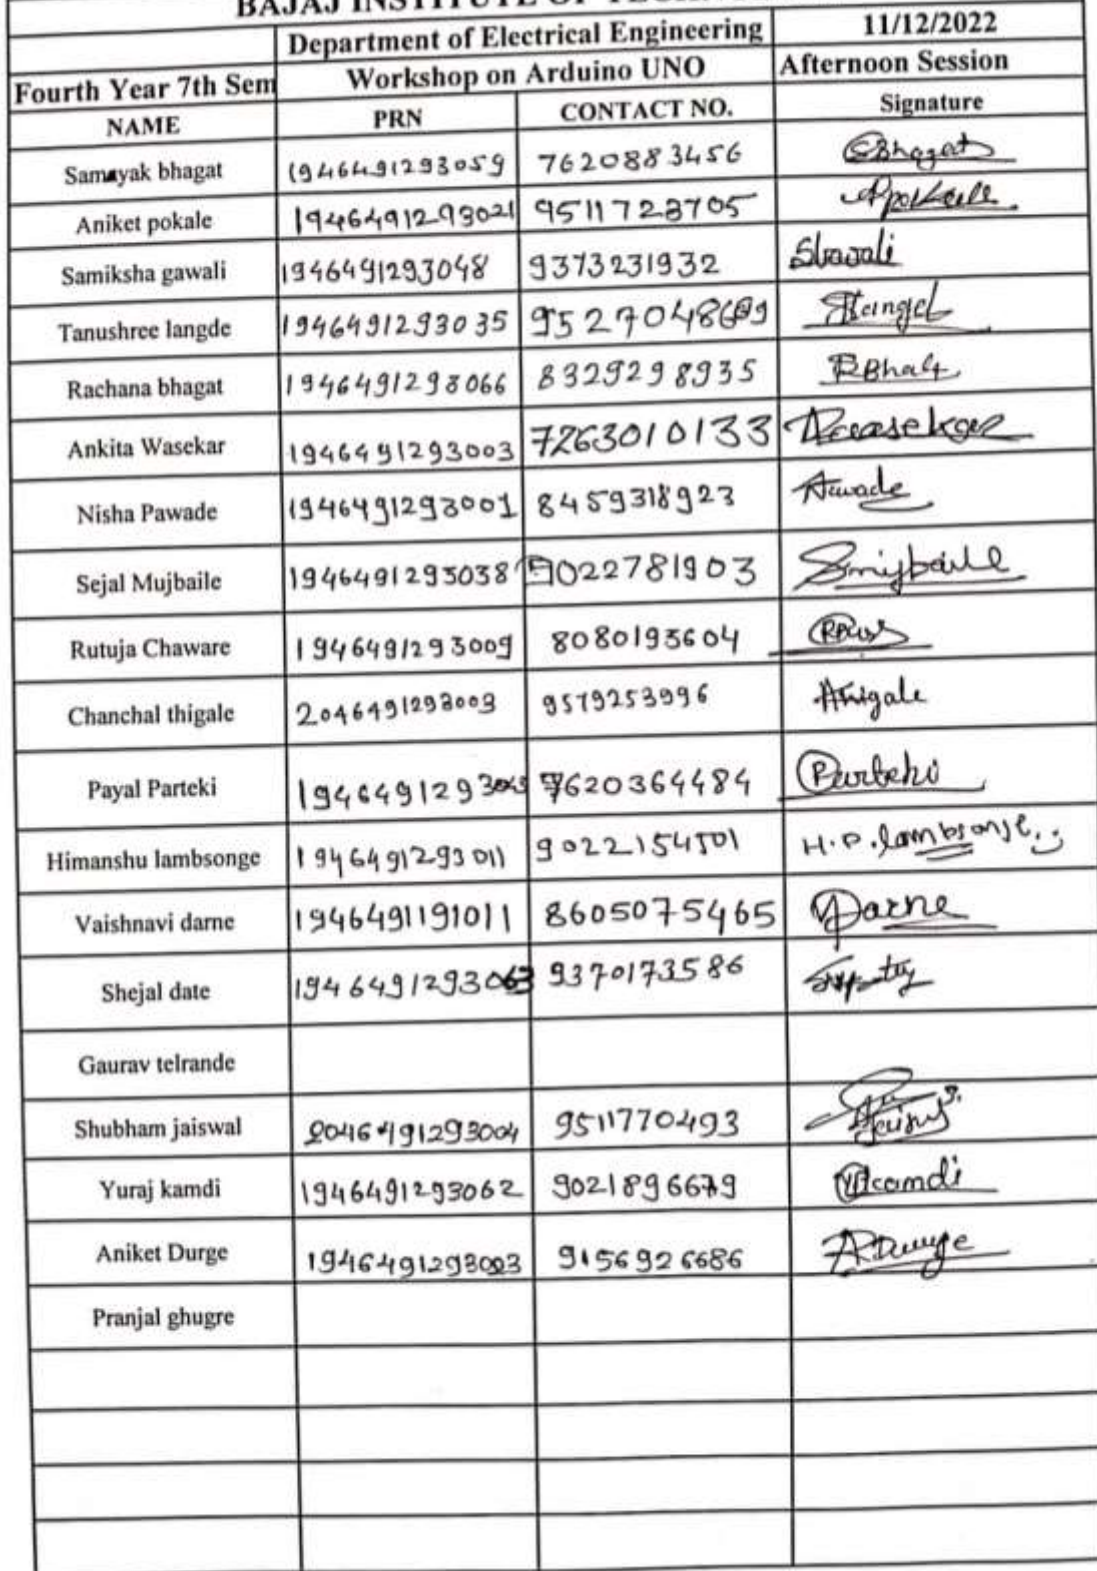 BAJAJ INSTITUTE OF
Department of Electrical Engineering 11/12/2022
Fourth Year 7th Sem Workshop on Arduino UNO Afternoon Session
NAME PRN CONTACT NO. Signature
Samayak bhagat 1946491293059 7620883456 SBhagat
Aniket pokale 1946491293021 9511723705 Apokale
Samiksha gawali 1946491293048 9373231932 SGavali
Tanushree langde 1946491293035
Rachana bhagat 1946491293066 8329298935
Ankita Wasekar 1946491293003 7263010133 Awasekar
Nisha Pawade 1946491293001 8459318923
Sejal Mujbaile 1946491293038 9022781903 Smujbaile
Rutuja Chaware 1946491293009 8080193604
Chanchal thigale 2046491293003 9579253996 thigale
Payal Parteki 7620364484 Parteki
Himanshu lambsonge 1946491293011 9022154501 H.P.lambsonge
Vaishnavi darne 1946491191011 8605075465 VDarne
Shejal date 1946491293063 9370173586
Gaurav telrande
Shubham jaiswal 2046491293004 9511770493
Yuraj kamdi 1946491293062 YKamdi
Aniket Durge 9156926686 ADurge
Pranjal ghugre